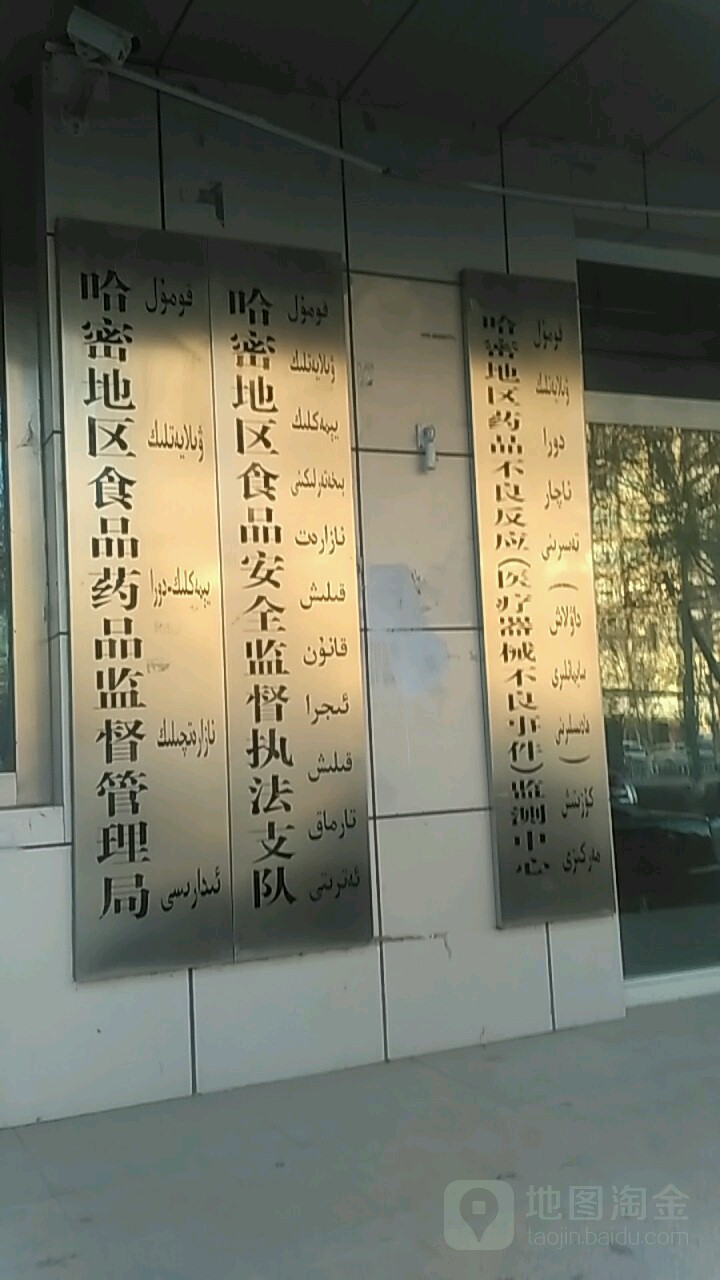 哈密地区食品药品监督管理局
قومۇل
ۋىلايەتلىك
يېمەكلىك-دورا
نازارەتچىلىك
ئىدارىسى
哈密地区食品安全监督执法支队
قومۇل
ۋىلايەتلىك
يېمەكلىك
بىخەتەرلىكنى
نازارەت
قىلىش
قانۇن
ئىجرا
قىلىش
تارماق
ئەترىتى
哈密地区药品不良反应(医疗器械不良事件)监测中心
قومۇل
ۋىلايەتلىك
دورا
ناچار
تەسىرىنى
(
داۋالاش
)
كۆزىتىش
مەركىزى
地图淘金
taojin.baidu.com